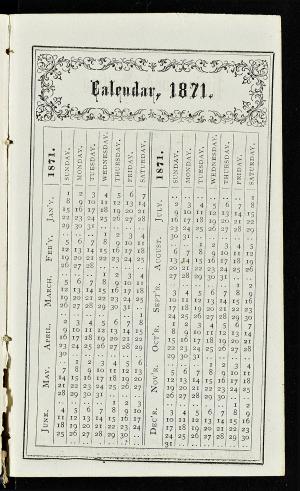 Calendar, 1871.
1871. SUNDAY. MONDAY. TUESDAY. WEDNESDAY. THURSDAY. FRIDAY. SATURDAY.
JAN'Y.
1 2 3 4 5 6 7
8 9 10 11 12 13 14
15 16 17 18 19 20 21
22 23 24 25 26 27 28
29 30 31 .. .. .. ..
FEB'Y.
.. .. .. 1 2 3 4
5 6 7 8 9 10 11
12 13 14 15 16 17 18
19 20 21 22 23 24 25
26 27 28 .. .. .. ..
MARCH.
.. .. .. 1 2 3 4
5 6 7 8 9 10 11
12 13 14 15 16 17 18
19 20 21 22 23 24 25
26 27 28 29 30 31 ..
APRIL.
.. .. .. .. .. .. 1
2 3 4 5 6 7 8
9 10 11 12 13 14 15
16 17 18 19 20 21 22
23 24 25 26 27 28 29
30 .. .. .. .. .. ..
MAY.
.. 1 2 3 4 5 6
7 8 9 10 11 12 13
14 15 16 17 18 19 20
21 22 23 24 25 26 27
28 29 30 31 .. .. ..
JUNE.
.. .. .. .. 1 2 3
4 5 6 7 8 9 10
11 12 13 14 15 16 17
18 19 20 21 22 23 24
25 26 27 28 29 30 ..
1871. SUNDAY. MONDAY. TUESDAY. WEDNESDAY. THURSDAY. FRIDAY. SATURDAY.
JULY.
.. .. .. .. .. .. 1
2 3 4 5 6 7 8
9 10 11 12 13 14 15
16 17 18 19 20 21 22
23 24 25 26 27 28 29
30 31 .. .. .. .. ..
AUGUST.
.. .. 1 2 3 4 5
6 7 8 9 10 11 12
13 14 15 16 17 18 19
20 21 22 23 24 25 26
27 28 29 30 31 .. ..
SEPT'R.
.. .. .. .. .. 1 2
3 4 5 6 7 8 9
10 11 12 13 14 15 16
17 18 19 20 21 22 23
24 25 26 27 28 29 30
OCT'R.
1 2 3 4 5 6 7
8 9 10 11 12 13 14
15 16 17 18 19 20 21
22 23 24 25 26 27 28
29 30 31 .. .. .. ..
NOV'R.
.. .. .. 1 2 3 4
5 6 7 8 9 10 11
12 13 14 15 16 17 18
19 20 21 22 23 24 25
26 27 28 29 30 .. ..
DEC'R.
.. .. .. .. .. 1 2
3 4 5 6 7 8 9
10 11 12 13 14 15 16
17 18 19 20 21 22 23
24 25 26 27 28 29 30
31 .. .. .. .. .. ..